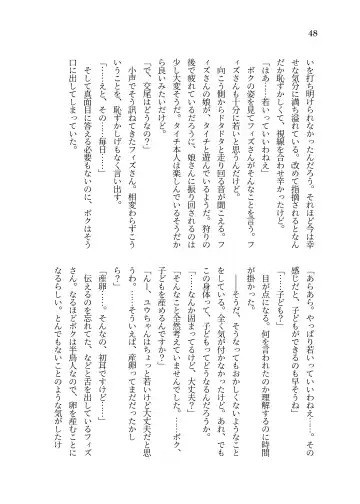 48
いを打ち明けられなかったんだろう。それほど今は幸
せな気分に満ち溢れている。改めて指摘されるとなん
だか恥ずかしくて、視線を合わせ辛かったけど。
「はあ……若いっていいわねえ」
ボクの姿を見てフィズさんがそんなことを言う。フ
ィズさんも十分に若いと思うんだけど。
向こう側からドタドタと走り回る音が聞こえる。フ
ィズさんの娘が、タイチと遊んでいるようだ。狩りの
後で疲れているだろうに、娘さんに振り回されるのは
少し大変そうだ。タイチ本人は楽しんでいるそうだか
ら良いみたいだけど。
「で、交尾はどうなの？」
小声でそう訊ねてきたフィズさん。相変わらずこう
いうことを、恥ずかしげもなく言い出す。
「……えと、その……毎日……」
そして真面目に答える必要もないのに、ボクはそう
口に出してしまっていた。
「あらあら、やっぱり若いっていいわねえ……。その
感じだと、子どもができるのも早そうね」
「……子ども？」
目が点になる。何を言われたのか理解するのに時間
が掛かった。
――そうだ、そうなってもおかしくないようなこと
をしている。全く気が付かなかったけど。あれ、でも
この身体って、子どもってどうなるんだろうか。
「……なんか固まってるけど、大丈夫？」
「そんなこと全然考えていませんでした。……ボク、
子どもを産めるんですか？」
「んー、ユウちゃんはちょっと若いけど大丈夫だと思
うわ。……そういえば、産卵ってまだだったかし
ら？」
「産卵……。そんなの、初耳ですけど……」
伝えるのを忘れてた、などと舌を出しているフィズ
さん。なるほどボクは半鳥人なので、卵を産むことに
なるらしい。とんでもないことのような気がしたけ